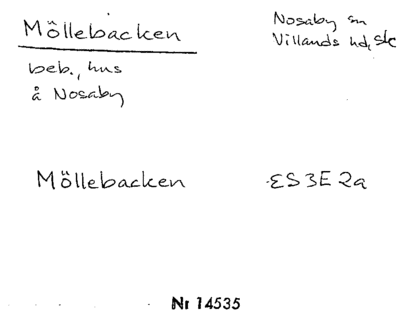 Möllebacken
Nosaby sn
Villands hd, Sk
beb., hus
å Nosaby
Möllebacken
ES 3E 2a
Nr 14535